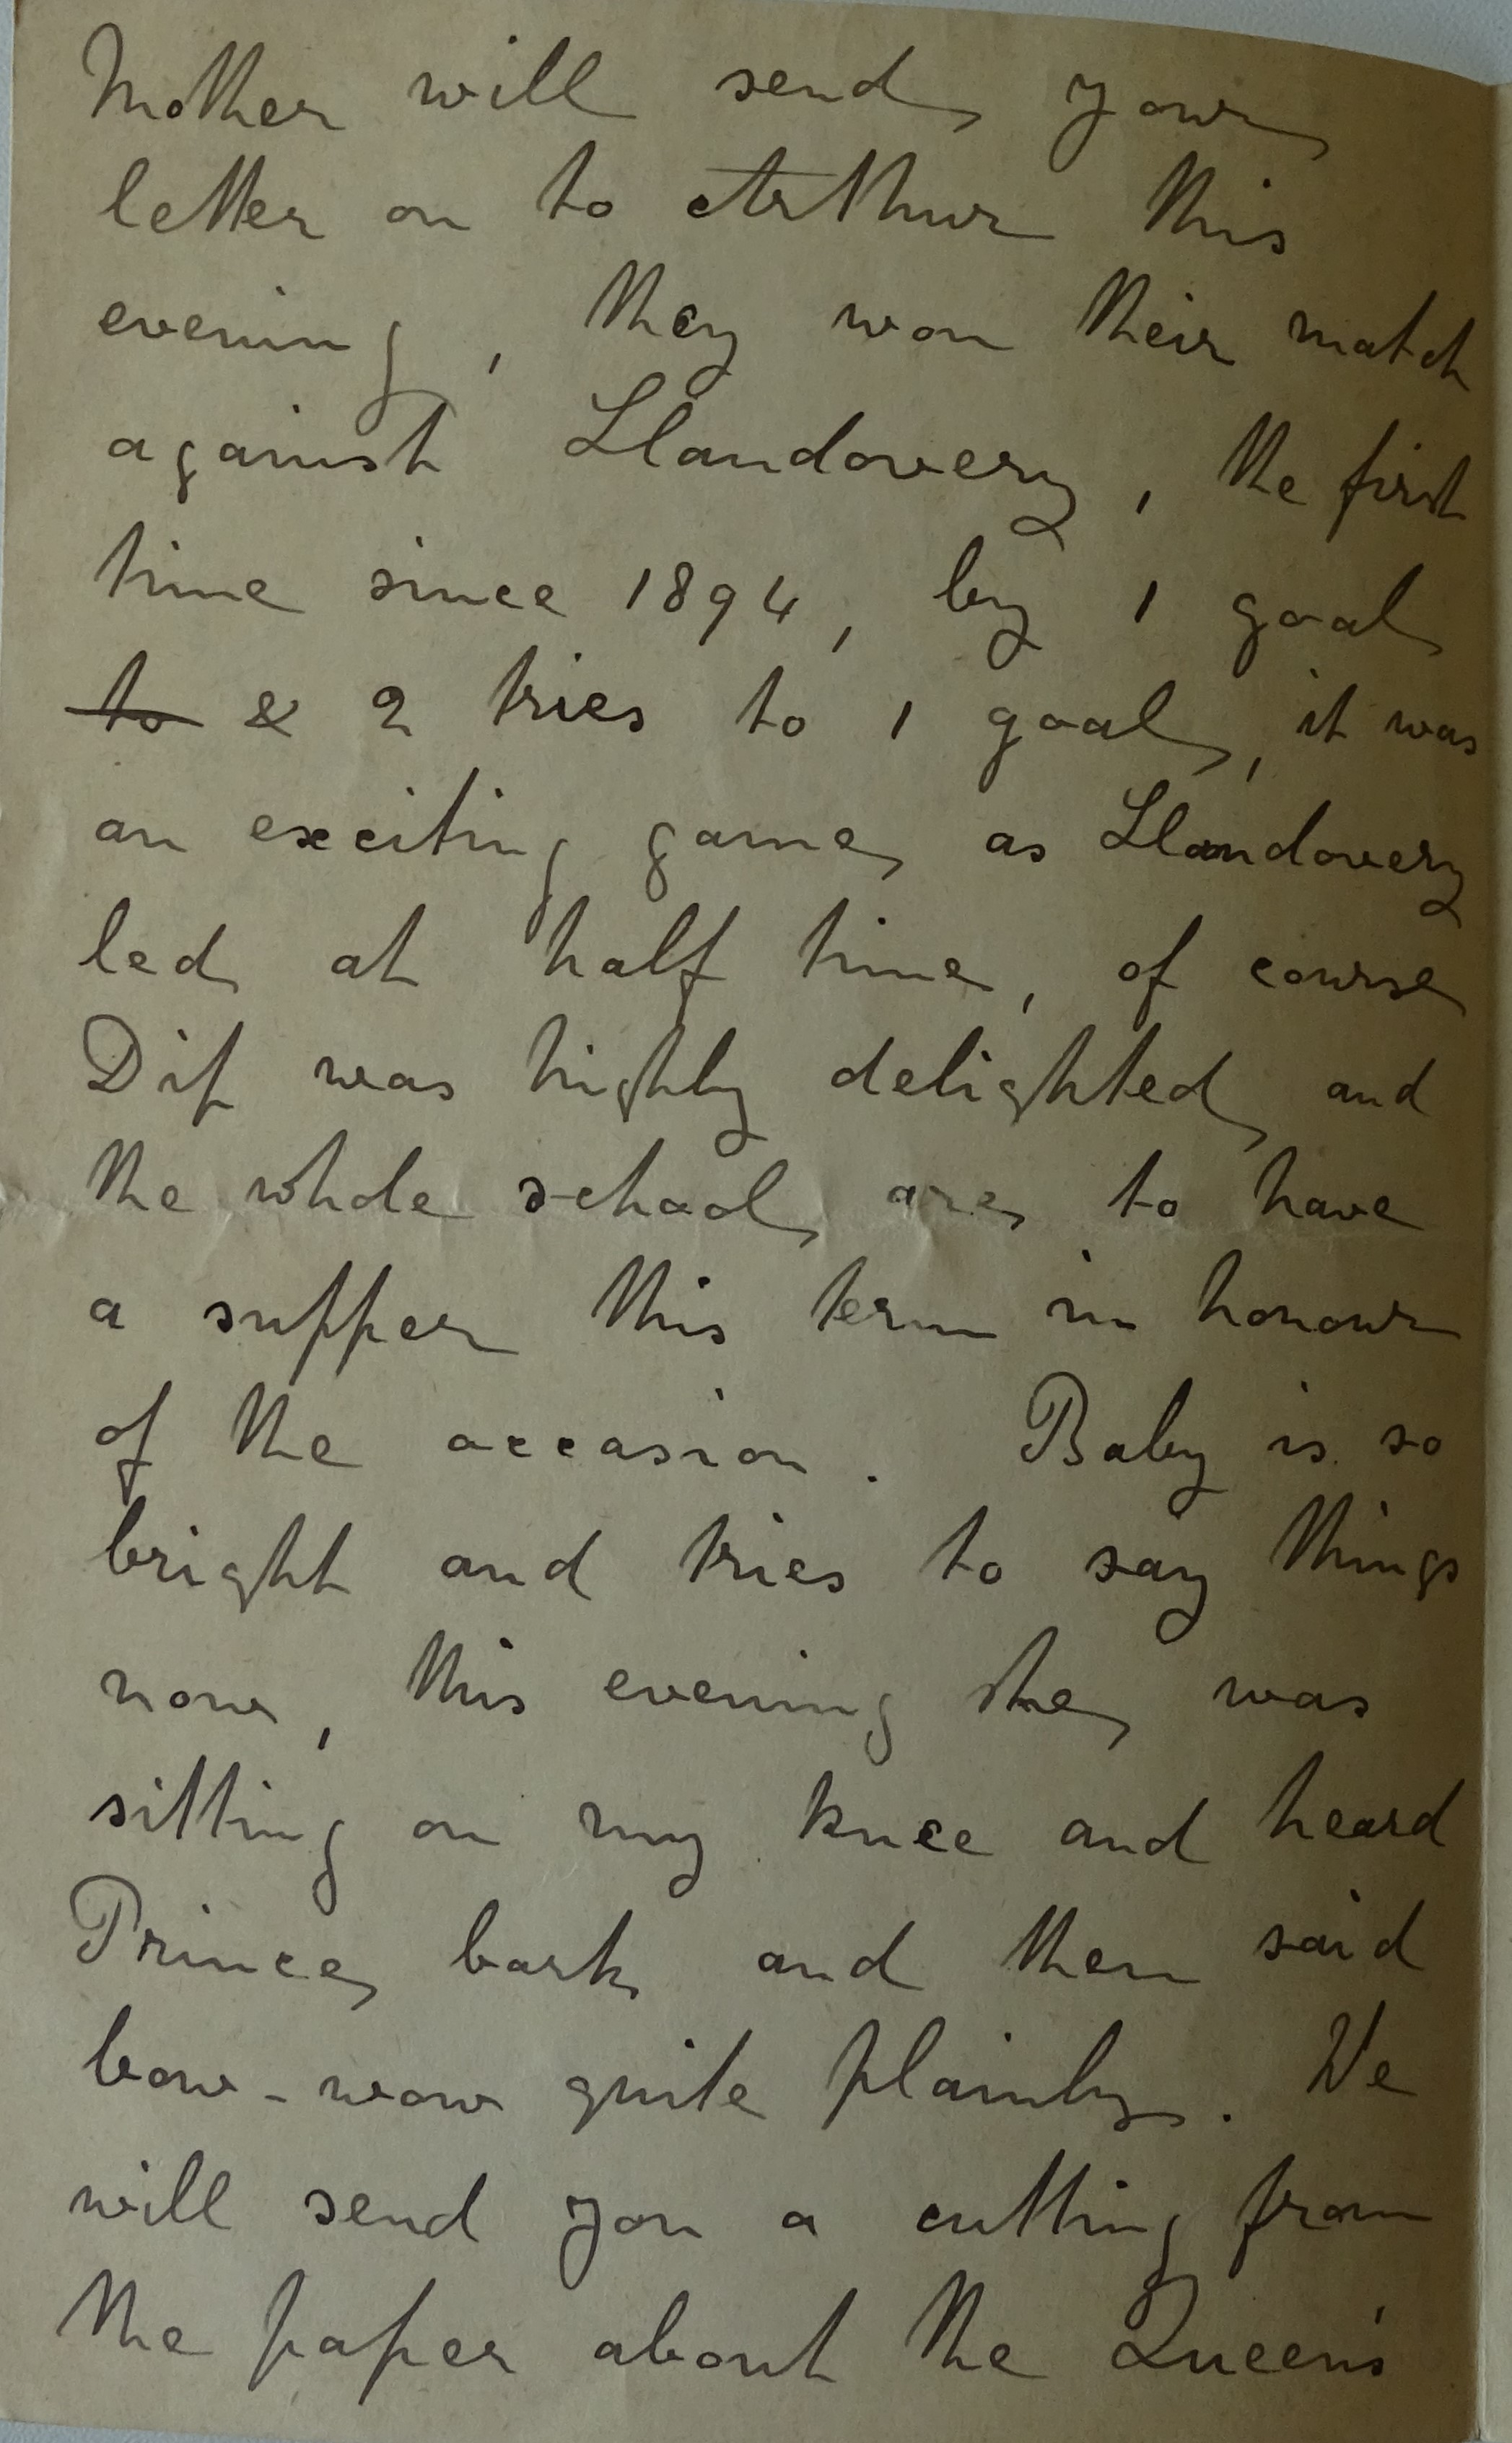 Mother will send your
letter on to Arthur this
evening, they won their match
against Llandovery, the first
time since 1894, by 1 goal
to & 2 tries to 1 goal, it was
an exciting game, as Llandovery
led at half time, of course
Dif was highly delighted and
the whole school are to have
a supper this term in honour
of the occasion. Baby is so
bright and tries to say things
now, this evening she was
sitting on my knee and heard
Prince bark and then said
bow-wow quite plainly. We
will send you a cutting from
the paper about the Queen's